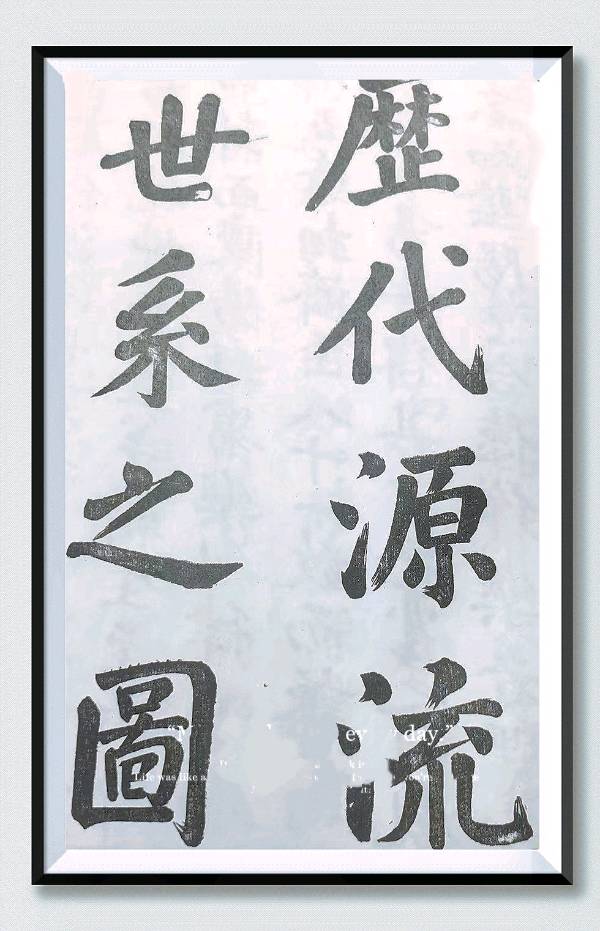 歷代源流
世系之圖
day
Life was like a